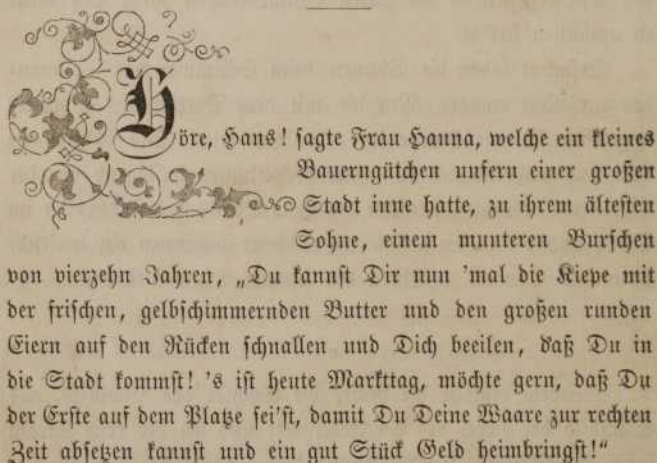 Höre, Hans! sagte Frau Hanna, welche ein kleines
Bauerngütchen unfern einer großen
Stadt inne hatte, zu ihrem ältesten
Sohne, einem munteren Burschen
von vierzehn Jahren, „Du kannst Dir nun 'mal die Kiepe mit
der frischen, gelbschimmernden Butter und den großen runden
Eiern auf den Rücken schnallen und Dich beeilen, daß Du in
die Stadt kommst! 's ist heute Markttag, möchte gern, daß Du
der Erste auf dem Platze sei'st, damit Du Deine Waare zur rechten
Zeit absetzen kannst und ein gut Stück Geld heimbringst!“